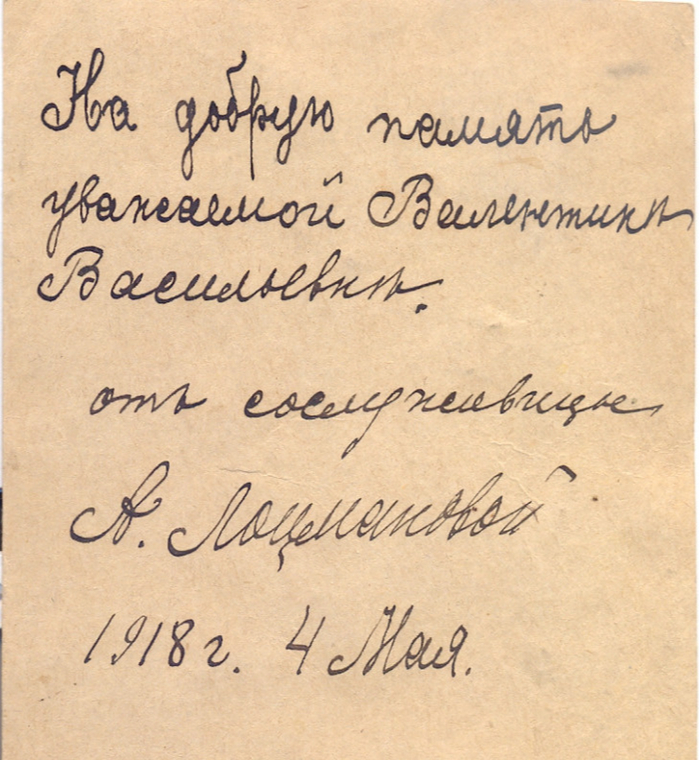 На добрую память
уважаемой Валентинѣ
Васильевнѣ.
отъ сослуживицы
А. Лоцмановой
1918 г. 4 Мая.